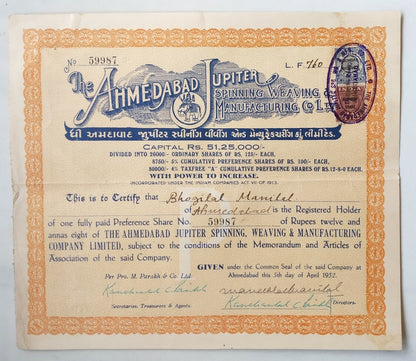 No 59987
L. F. 760
The AHMEDABAD JUPITER
SPINNING, WEAVING &
MANUFACTURING Co LTD.
ધી અમદાવાદ જ્યુપીટર સ્પીનીંગ વીવીંગ એન્ડ મેન્યુફેક્ચરીંગ કું. લીમીટેડ.
CAPITAL RS. 51,25,000/-
DIVIDED INTO 26000/- ORDINARY SHARES OF RS. 125/- EACH.
8750/- 5% CUMULATIVE PREFERENCE SHARES OF RS. 100/- EACH,
80000/- 4% TAXFREE "A" CUMULATIVE PREFERENCE SHARES OF RS.12-8-0 EACH.
WITH POWER TO INCREASE.
INCORPORATED UNDER THE INDIAN COMPANIES ACT VII OF 1913.
This is to Certify that Bhogilal Manilal
of Ahmedabad is the Registered Holder
of one fully paid Preference Share No. 59987 of Rupees twelve and
annas eight of THE AHMEDABAD JUPITER SPINNING, WEAVING & MANUFACTURING
COMPANY LIMITED, subject to the conditions of the Memorandum and Articles of
Association of the said Company.
GIVEN under the Common Seal of the said Company at
Ahmedabad this 5th day of April 1952.
Per Pro. M. Parakh & Co. Ltd.
Secretaries, Treasurers & Agents.
Directors.